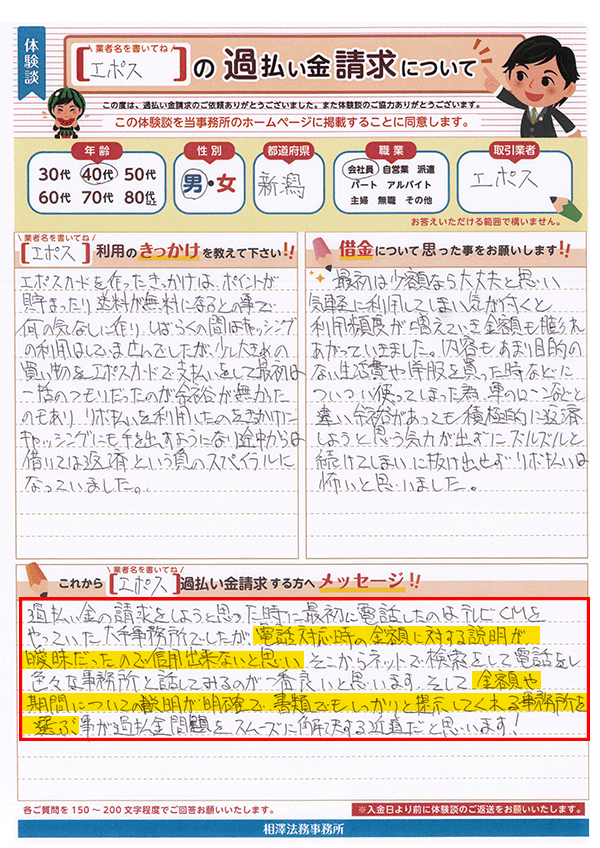 体験談
業者名を書いてね
[エポス]の過払い金請求について
この度は、過払い金請求のご依頼ありがとうございました。また体験談のご協力ありがとうございます。
この体験談を当事務所のホームページに掲載することに同意します。
年齢
30代 40代 50代
60代 70代 80代以上
性別
男・女
都道府県
新潟
職業
会社員 自営業 派遣
パート アルバイト
主婦 無職 その他
取引業者
エポス
お答えいただける範囲で構いません。
業者名を書いてね
[エポス]利用のきっかけを教えて下さい!!
エポスカードを作ったきっかけは、ポイントが
貯まったり送料が無料になるとの事で
何の気なしに作り、しばらくの間はキャッシング
の利用はしていませんでしたが、少し大きめの
買い物をエポスカードで支払いをして最初は
一括のつもりだったのが余裕が無かった
のもあり リボ払いを利用したのをきっかけに
キャッシングにも手を出すようになり途中からは
借りては返済という負のスパイラルに
なっていました。
借金について思った事をお願いします!!
最初は少額なら大丈夫と思い
気軽に利用してしまい気が付くと
利用頻度が増えていき金額も膨れ
あがっていきました。内容もあまり目的の
ない生活費や洋服を買った時などに
ついつい使ってしまった為、車のローンなどと
違い余裕があっても積極的に返済
しようと思う気力が出ずにズルズルと
続けてしまいに抜け出せずリボ払いは
怖いと思いました。
業者名を書いてね
これから[エポス]過払い金請求する方へメッセージ!!
過払い金の請求をしようと思った時に最初に電話したのはテレビCMを
やっていた大手事務所でしたが、電話対応時の金額に対する説明が
曖昧だったので信用出来ないと思い そこからネットで検索をして電話をし
色々な事務所と話してみるのが一番良いと思います。そして 金額や
期間についての説明が明確で 書類でもしっかりと提示してくれる事務所を
選ぶ事が過払金問題をスムーズに解決する近道だと思います!
各ご質問を150～200文字程度でご回答お願いいたします。
※入金日より前に体験談のご返送をお願いいたします。
相澤法務事務所